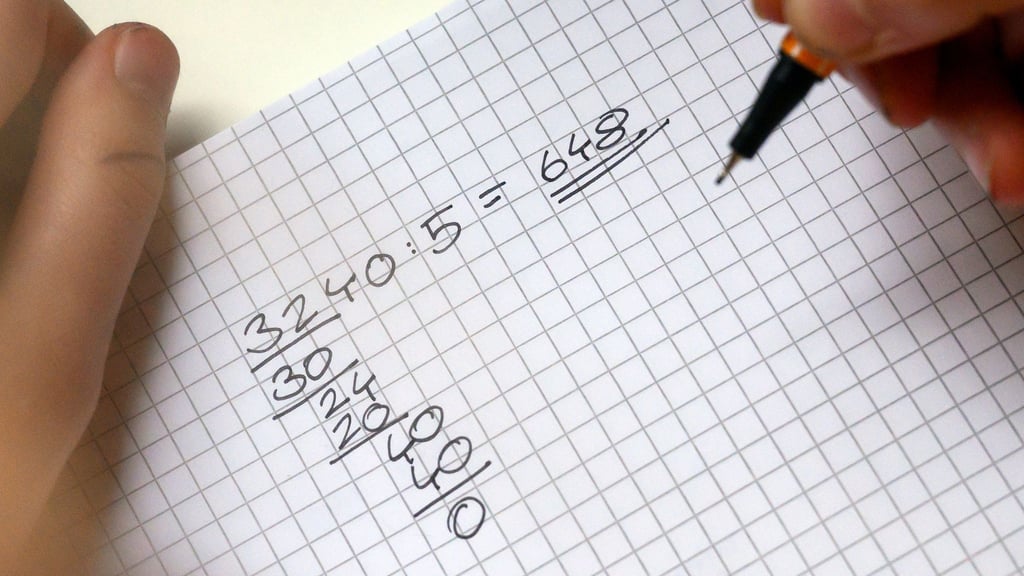 3240:5=648
30
24
20
40
40
0